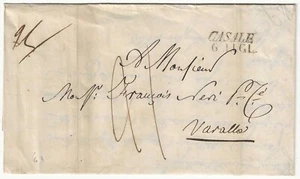 CASALE
6 LUGL.
A Monsieur
Mons.r François Neri
Varallo